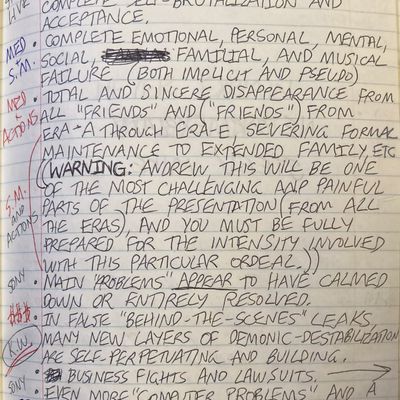 LIVE COMPLETE SELF-BRUTALIZATION AND
ACCEPTANCE.
MED S.M. • COMPLETE EMOTIONAL, PERSONAL, MENTAL,
SOCIAL, FAMILIAL, AND MUSICAL
FAILURE (BOTH IMPLICIT AND PSEUDO)
MED + ACTIONS • TOTAL AND SINCERE DISAPPEARANCE FROM
ALL "FRIENDS" AND ("FRIENDS") FROM
ERA-A THROUGH ERA-E, SEVERING FORMAL
MAINTENANCE TO EXTENDED FAMILY, ETC
(WARNING: ANDREW, THIS WILL BE ONE
S.M. AND ACTIONS OF THE MOST CHALLENGING AND PAINFUL
PARTS OF THE PRESENTATION (FROM ALL
THE ERAS), AND YOU MUST BE FULLY
PREPARED FOR THE INTENSITY INVOLVED
WITH THIS PARTICULAR ORDEAL.))
SONY • MAIN "PROBLEMS" APPEAR TO HAVE CALMED
DOWN OR ENTIRELY RESOLVED.
### • IN FALSE "BEHIND-THE-SCENES" LEAKS,
MANY NEW LAYERS OF DEMONIC-DESTABILIZATION
R.W. ARE SELF-PERPETUATING AND BUILDING.
SONY • BUSINESS FIGHTS AND LAWSUITS. →
• EVEN MORE "COMPUTER PROBLEMS" AND A